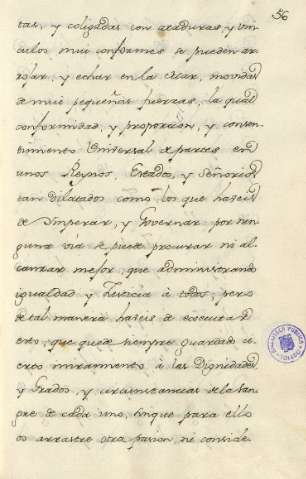 56
tas, y coligadas con ataduras, y vin-
culos mui conformes se pueden ar-
rojar, y echar en la Mar, movidas
de mui pequeñas fuerzas, la qual
conformidad, y proporcion, y consen-
timiento Universal de partes en
unos Reynos, Estados, y Señorios
tan dilatados como los que haveis
de Imperar, y Governar por nin-
guna via se puede procurar ni al-
canzar mejor, que administrando
igualdad y Justicia à todos, pero
de tal manera haveis de executar
esto, que quede siempre guardado ci-
erto miramiento à las Dignidades
y Grados, y circunstancias de la San-
gre de cada uno, sinque para ello
os arrastre otra pasion, ni conside-
BIBLIOTECA PUBLICA
TOLEDO